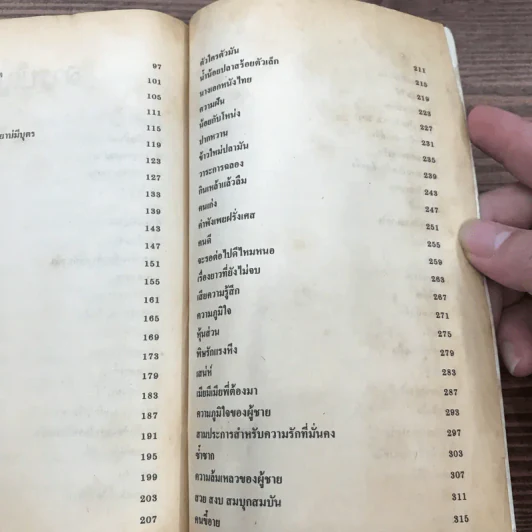 97
101
105
111
115
119
123
127
133
139
143
147
151
155
161
165
169
173
179
183
187
191
195
199
203
207
ตัวใครตัวมัน 211
น้ำน้อยปลาสร้อยตัวเล็ก 215
นางเอกหนังไทย 219
ความฝัน 223
น้อยกับโหน่ง 227
ปากหวาน 231
ข้าวใหม่ปลามัน 235
วาระการฉลอง 239
กินเหล้าแล้วลืม 243
คนเก่ง 247
คำพังเพยฝรั่งเศส 251
คนดี 255
จะรอต่อไปดีไหมหนอ 259
เรื่องยาวที่ยังไม่จบ 263
เสียความรู้สึก 267
ความภูมิใจ 271
หุ้นส่วน 275
พิษรักแรงหึง 279
เสน่ห์ 283
เมียมีเมียพี่ต้องมา 287
ความภูมิใจของผู้ชาย 293
สามประการสำหรับความรักที่มั่นคง 297
ซ้ำซาก 303
ความล้มเหลวของผู้ชาย 307
สวย สงบ สมบุกสมบัน 311
คนขี้อาย 315